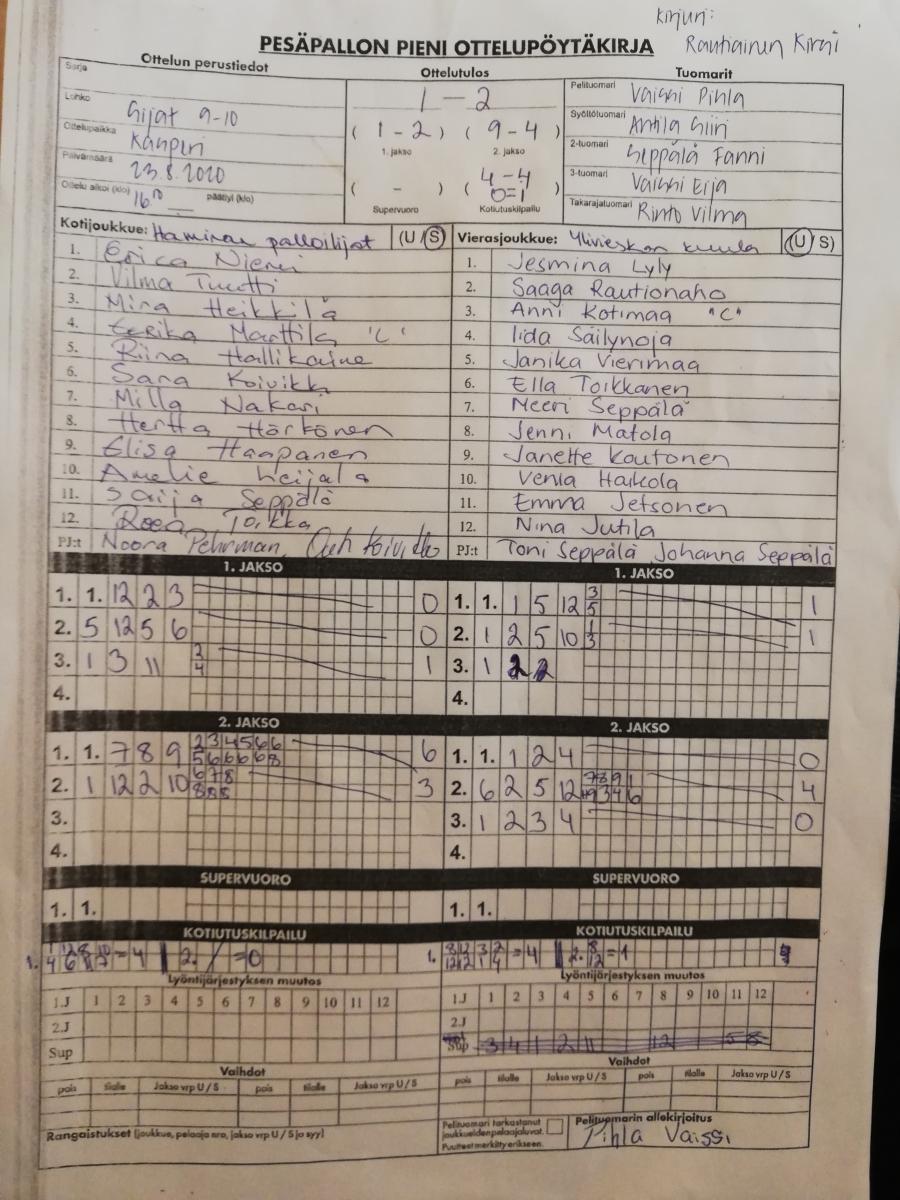 Kirjuri:
PESÄPALLON PIENI OTTELUPÖYTÄKIRJA Rautiainen Kirsi
Ottelun perustiedot Ottelutulos Tuomarit
Sarja
Lohko Sijat 9-10
Ottelupaikka Kämpin
Päivämäärä 23.8.2020
Ottelu alkoi (klo) 16 10 päättyi (klo)
1 - 2
( 1 - 2 ) ( 9 - 4 )
1. jakso 2. jakso
( - ) ( 4 - 4 0=1 )
Supervuoro Kotiutuskilpailu
Pelituomari Vaissi Pihla
Syöttötuomari Antila Siiri
2-tuomari Seppälä Fanni
3-tuomari Vaissi Eija
Takarajatuomari Rinto Vilma
Kotijoukkue: Haminan palloilijat (U/S)
1. Erica Niemi
2. Vilma Tuutti
3. Mira Heikkilä
4. Eerika Marttila "C"
5. Riina Hallikaine
6. Sara Koivikka
7. Milla Nakari
8. Hertta Hörkönen
9. Elisa Haapanen
10. Amelie Leijala
11. Saija Seppälä
12. Roea Toikka
PJ:t Noora Pehrman, Outi Koivikko
Vierasjoukkue: Ylivieskan kuula (U/S)
1. Jesmina Lyly
2. Saaga Rautionaho
3. Anni Kotimaa "C"
4. Iida Säilynoja
5. Janika Vierimaa
6. Ella Toikkanen
7. Neeri Seppälä
8. Jenni Matola
9. Janette Koutonen
10. Venla Haikola
11. Emma Jetsonen
12. Nina Jutila
PJ:t Toni Seppälä Johanna Seppälä
1. JAKSO 1. JAKSO
1. 1. 12 2 3 0 1. 1. 1 5 12 3 5 1
2. 5 12 5 6 0 2. 1 2 5 10 1 3 1
3. 1 3 11 3 4 1 3. 1 2 2
4. 4.
2. JAKSO 2. JAKSO
1. 1. 7 8 9 2 3 4 5 6 6 5 6 6 6 6 8 6 1. 1. 1 2 4 0
2. 1 12 2 10 6 7 8 8 8 8 3 2. 6 2 5 12 7 8 9 1 3 4 6 4
3. 3. 1 2 3 4 0
4. 4.
SUPERVUORO SUPERVUORO
1. 1. 1. 1.
KOTIUTUSKILPAILU KOTIUTUSKILPAILU
1. =4 2. / =0 1. 8 12 3 2 12 12 1 4 =4 2. 8 12 =1
Lyöntijärjestyksen muutos Lyöntijärjestyksen muutos
1.J 1 2 3 4 5 6 7 8 9 10 11 12 1.J 1 2 3 4 5 6 7 8 9 10 11 12
2.J 2.J
Sup Sup 3 4 1 2 11 12 5 8
Vaihdot Vaihdot
pois tilalle Jakso vrp U / S pois tilalle Jakso vrp U / S pois tilalle Jakso vrp U / S pois tilalle Jakso vrp U / S
Rangaistukset (joukkue, pelaaja nro, jakso vrp U / S ja syy)
Pelituomari tarkastanut
joukkueiden pelaajaluvat.
Puutteet merkitty erikseen.
Pelituomarin allekirjoitus
Pihla Vaissi